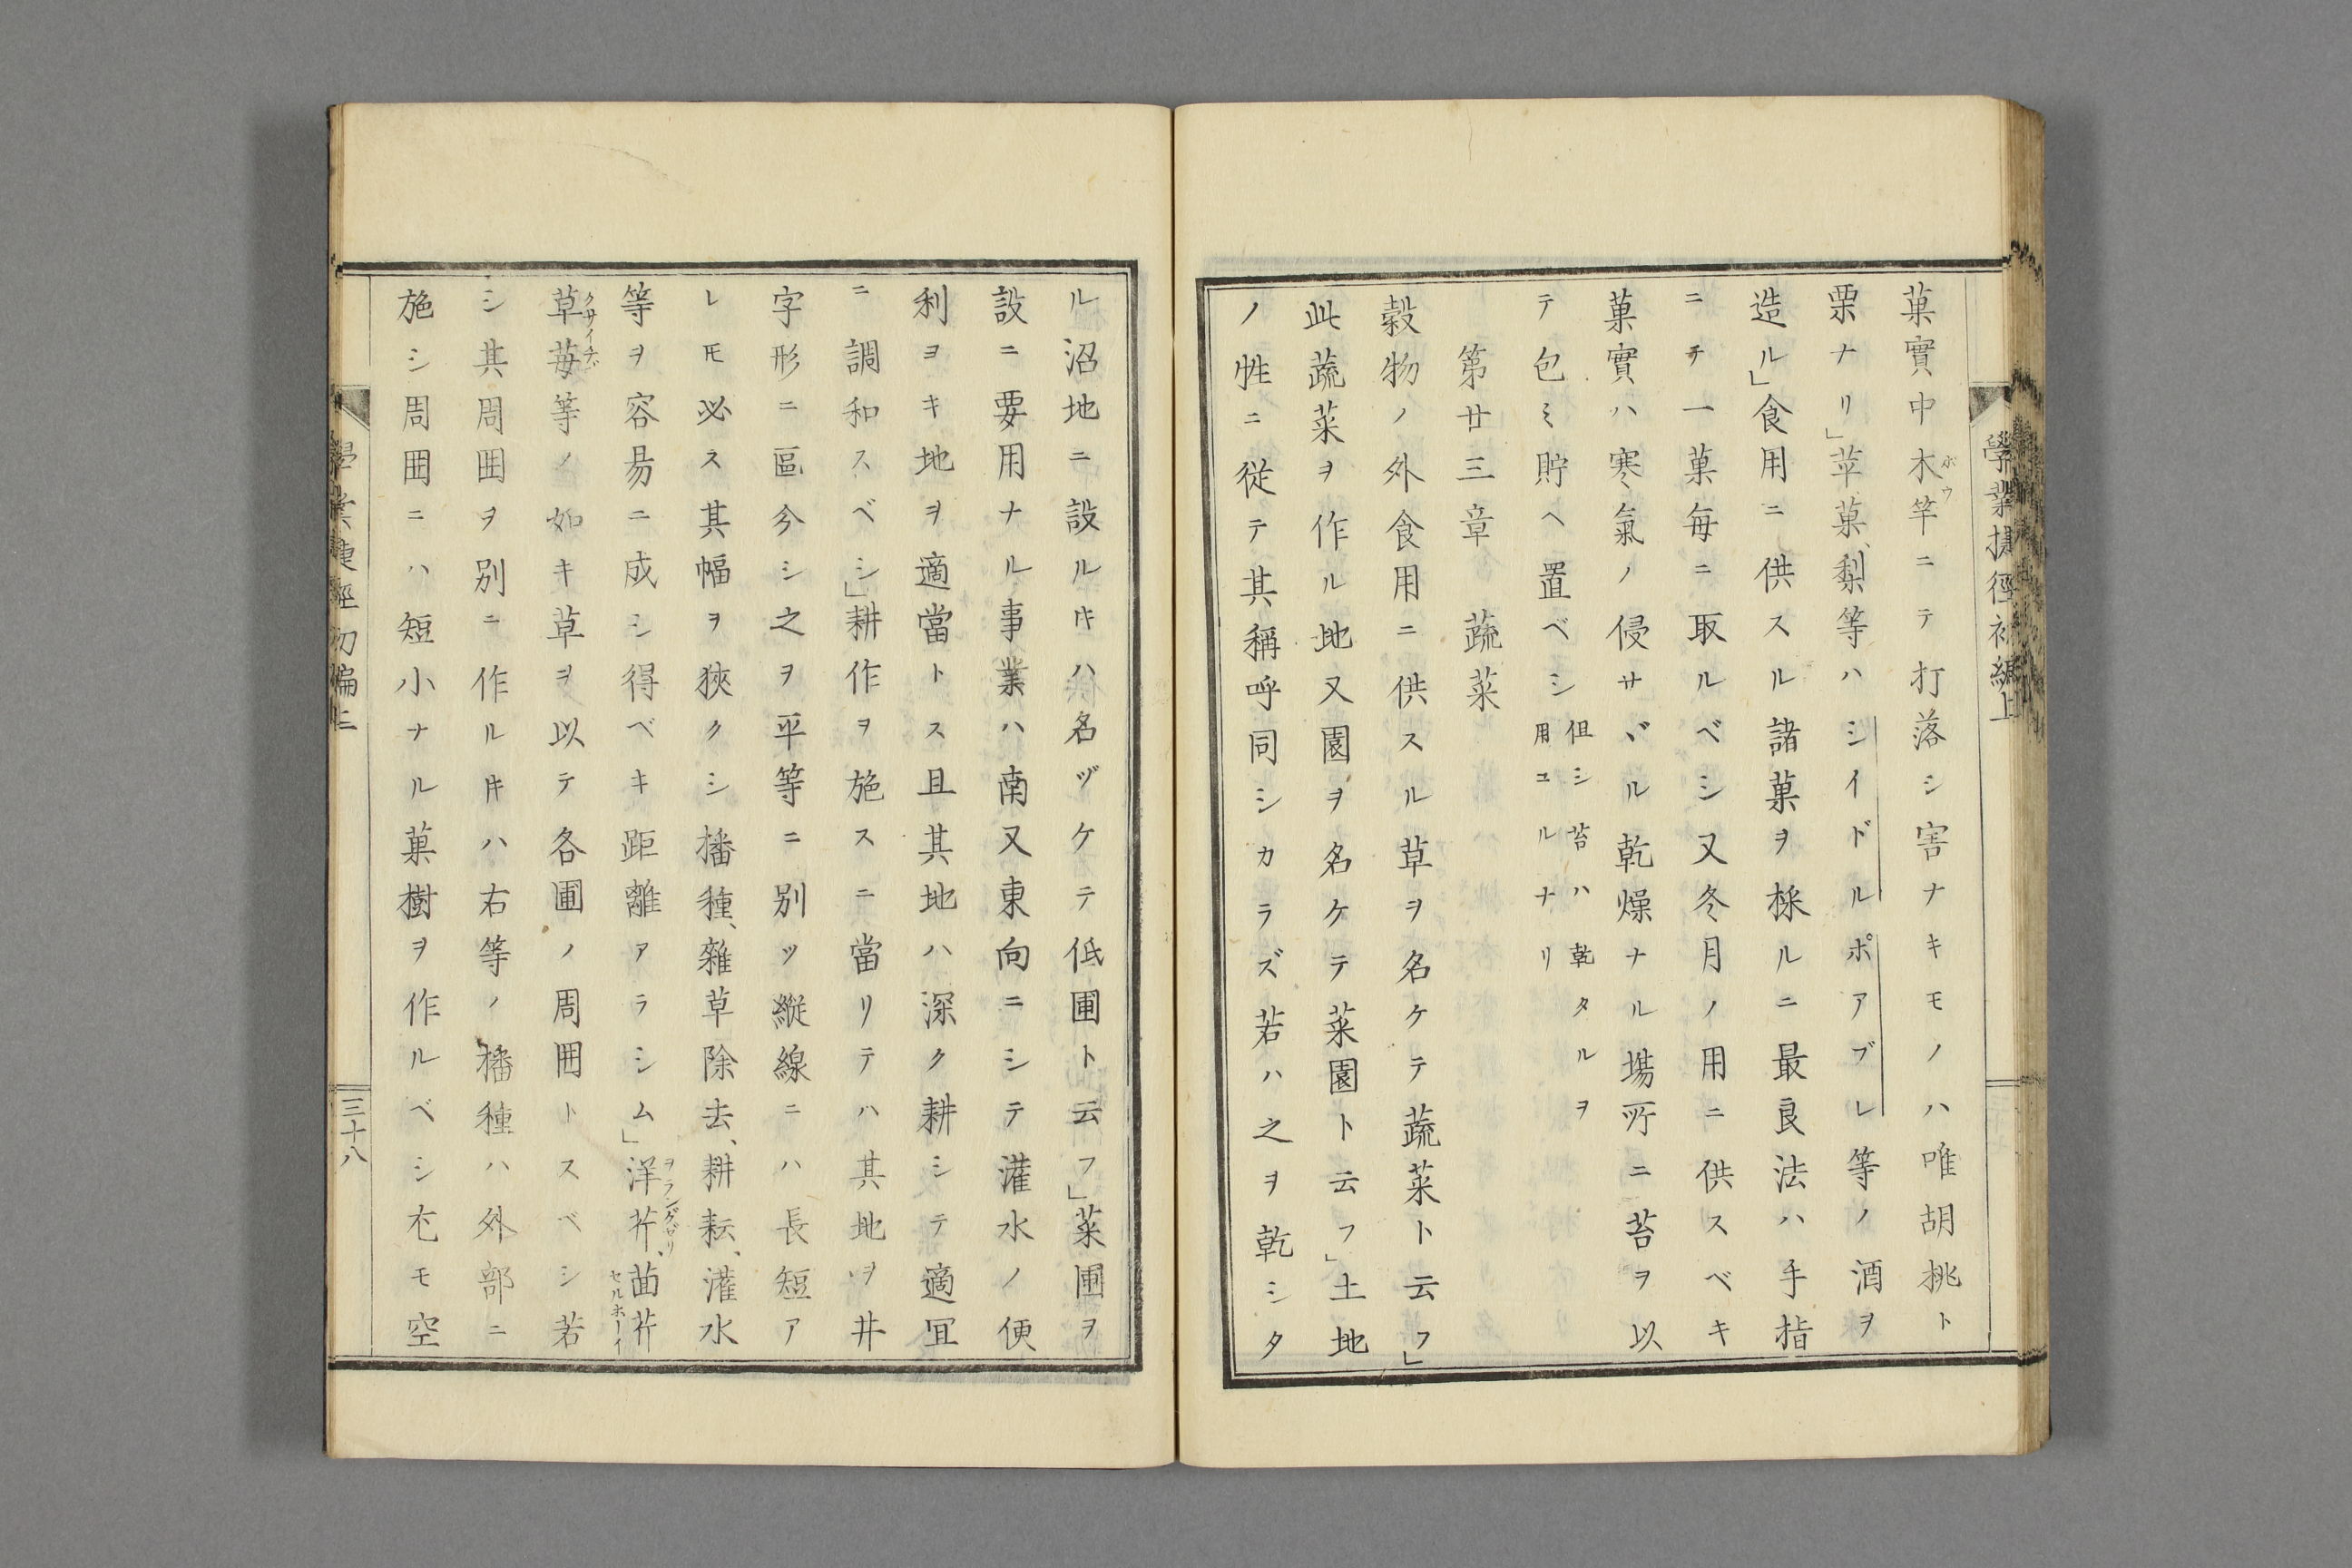 學業捷徑初編上
菓實中木竿ニテ打落シ害ナキモノハ唯胡桃ト
ボウ
栗ナリ」苹菓、梨等ハシイドルポアブレ等ノ酒ヲ
造ル」食用ニ供スル諸菓ヲ採ルニ最良法ハ手指
ニテ一菓毎ニ取ルベシ又冬月ノ用ニ供スベキ
菓實ハ寒氣ノ侵サヾル乾燥ナル塲所ニ苔ヲ以
テ包ミ貯ヘ置ベシ
但シ苔ハ乾タルヲ
用ユルナリ
第廿三章 蔬菜
穀物ノ外食用ニ供スル草ヲ名ケテ蔬菜ト云フ」
此蔬菜ヲ作ル地又園ヲ名ケテ菜園ト云フ」土地
ノ性ニ従テ其稱呼同シカラズ若ハ之ヲ乾シタ
ル沼地ニ設ルキハ名ヅケテ低圃ト云フ」菜圃ヲ
設ニ要用ナル事業ハ南又東向ニシテ灌水ノ便
利ヨキ地ヲ適當トス且其地ハ深ク耕シテ適冝
ニ調和スベシ」耕作ヲ施スニ當リテハ其地ヲ井
字形ニ區分シ之ヲ平等ニ別ツ縦線ニハ長短ア
レ𪜈必ス其幅ヲ狹クシ播種、雜草除去、耕耘、灌水
等ヲ容昜ニ成シ得ベキ距離アラシム」洋芹、茴芹
ヲランダゼリ
セルホーイ
草苺等ノ如キ草ヲ以テ各圃ノ周囲トスベシ若
クサイチゴ
シ其周囲ヲ別ニ作ルキハ右等ノ播種ハ外部ニ
施シ周囲ニハ短小ナル菓樹ヲ作ルベシ尤モ空
學業捷徑初編上
三十八